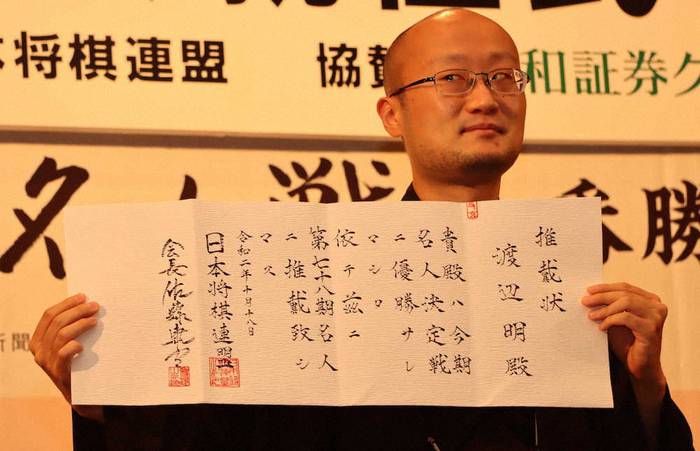 本将棋連盟
協賛
和証券
名人戦
勝
新聞
推戴状
渡辺明殿
貴殿ハ今期
名人決定戦
ニ優勝サレ
マシロ
依テ茲ニ
第七十八期名人
ニ推戴致シ
マス
令和二年十月十八日
日本将棋連盟
会長佐藤康光